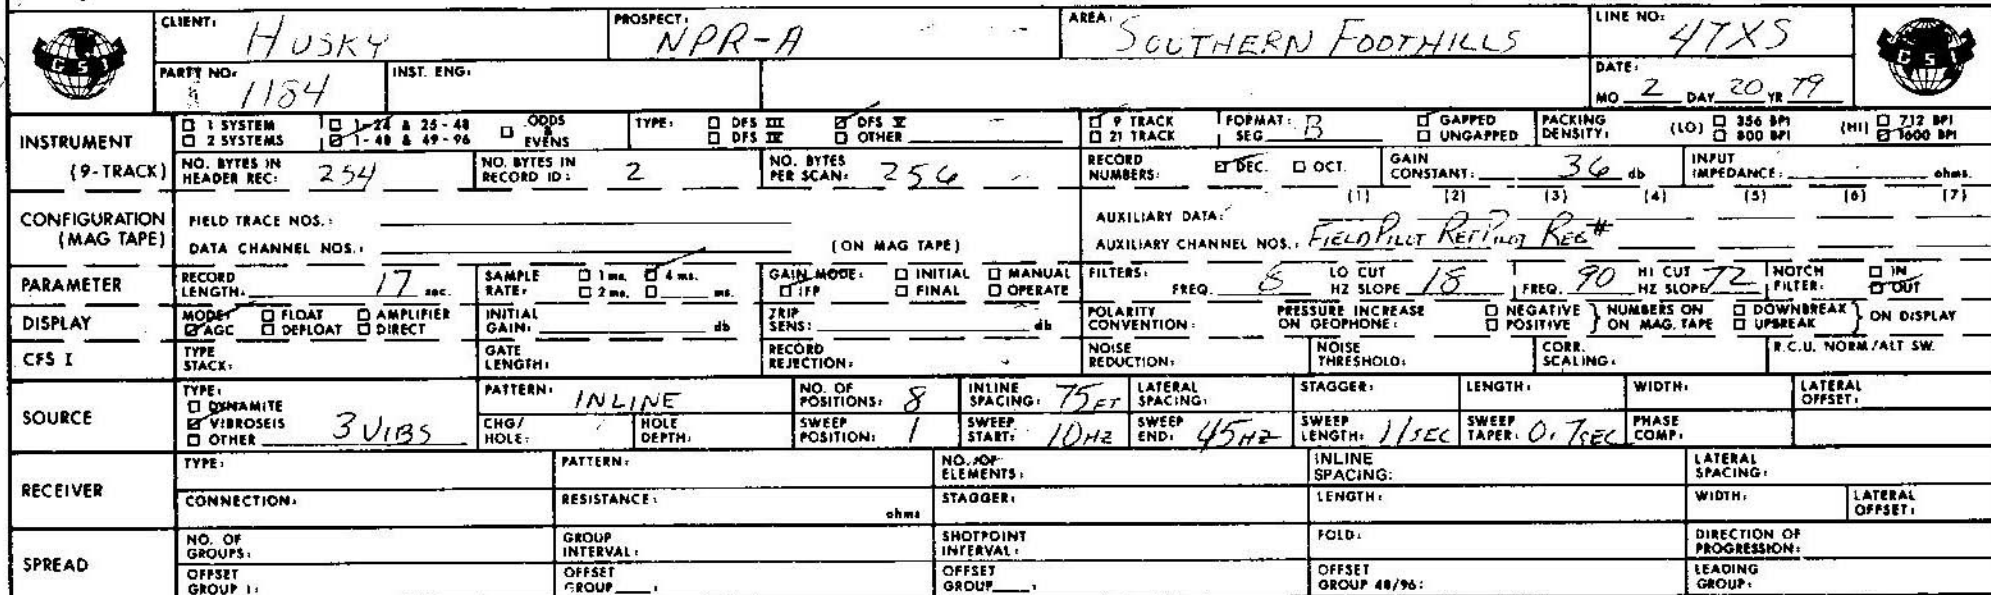 CLIENT: HUSKY PROSPECT: NPR-A AREA: SOUTHERN FOOTHILLS LINE NO: 47XS
GSI GSI
PARTY NO: 1184 INST. ENG: DATE: MO 2 DAY 20 YR 79
INSTRUMENT (9-TRACK)
☐ 1 SYSTEM ☐ 1-24 & 25-48 ☐ ODDS & EVENS TYPE: ☐ DFS III ☑ DFS V ☐ 9 TRACK FORMAT: SEG B ☐ GAPPED PACKING DENSITY: (LO) ☐ 356 BPI (HI) ☐ 712 BPI
☐ 2 SYSTEMS ☑ 1-48 & 49-96 ☐ DFS IV ☐ OTHER ☐ 21 TRACK ☐ UNGAPPED ☐ 800 BPI ☑ 1600 BPI
NO. BYTES IN HEADER REC: 254 NO. BYTES IN RECORD ID: 2 NO. BYTES PER SCAN: 256 RECORD NUMBERS: ☑ DEC. ☐ OCT. GAIN CONSTANT: 36 db INPUT IMPEDANCE: ohms.
CONFIGURATION (MAG TAPE)
(1) (2) (3) (4) (5) (6) (7)
FIELD TRACE NOS.: AUXILIARY DATA:
DATA CHANNEL NOS.: (ON MAG TAPE) AUXILIARY CHANNEL NOS.: FIELD PILOT REF PILOT REC#
PARAMETER RECORD LENGTH: 17 sec. SAMPLE RATE: ☐ 1 ms. ☑ 4 ms. ☐ 2 ms. ☐ ms. GAIN MODE: ☐ IFP ☐ INITIAL ☐ FINAL ☐ MANUAL ☐ OPERATE FILTERS: FREQ. LO CUT HZ SLOPE 18 FREQ. 90 HI CUT HZ SLOPE 72 NOTCH FILTER: ☐ IN ☑ OUT
DISPLAY MODE: ☑ AGC ☐ FLOAT ☐ DEFLOAT ☐ AMPLIFIER ☐ DIRECT INITIAL GAIN: db TRIP SENS: db POLARITY CONVENTION: PRESSURE INCREASE ON GEOPHONE: ☐ NEGATIVE ☐ POSITIVE NUMBERS ON ON MAG. TAPE ☐ DOWNBREAK ☐ UPBREAK ON DISPLAY
CFS I TYPE STACK: GATE LENGTH: RECORD REJECTION: NOISE REDUCTION: NOISE THRESHOLD: CORR. SCALING: R.C.U. NORM/ALT SW.
SOURCE
TYPE: ☐ DYNAMITE ☑ VIBROSEIS ☐ OTHER 3 VIBS
PATTERN: INLINE NO. OF POSITIONS: 8 INLINE SPACING: 75 FT LATERAL SPACING: STAGGER: LENGTH: WIDTH: LATERAL OFFSET:
CHG/HOLE: HOLE DEPTH: SWEEP POSITION: 1 SWEEP START: 10 HZ SWEEP END: 45 HZ SWEEP LENGTH: 11 SEC SWEEP TAPER: 0.7 SEC PHASE COMP:
RECEIVER
TYPE: PATTERN: NO. OF ELEMENTS: INLINE SPACING: LATERAL SPACING:
CONNECTION: RESISTANCE: ohms STAGGER: LENGTH: WIDTH: LATERAL OFFSET:
SPREAD
NO. OF GROUPS: GROUP INTERVAL: SHOTPOINT INTERVAL: FOLD: DIRECTION OF PROGRESSION:
OFFSET GROUP 1: OFFSET GROUP : OFFSET GROUP : OFFSET GROUP 48/96: LEADING GROUP: